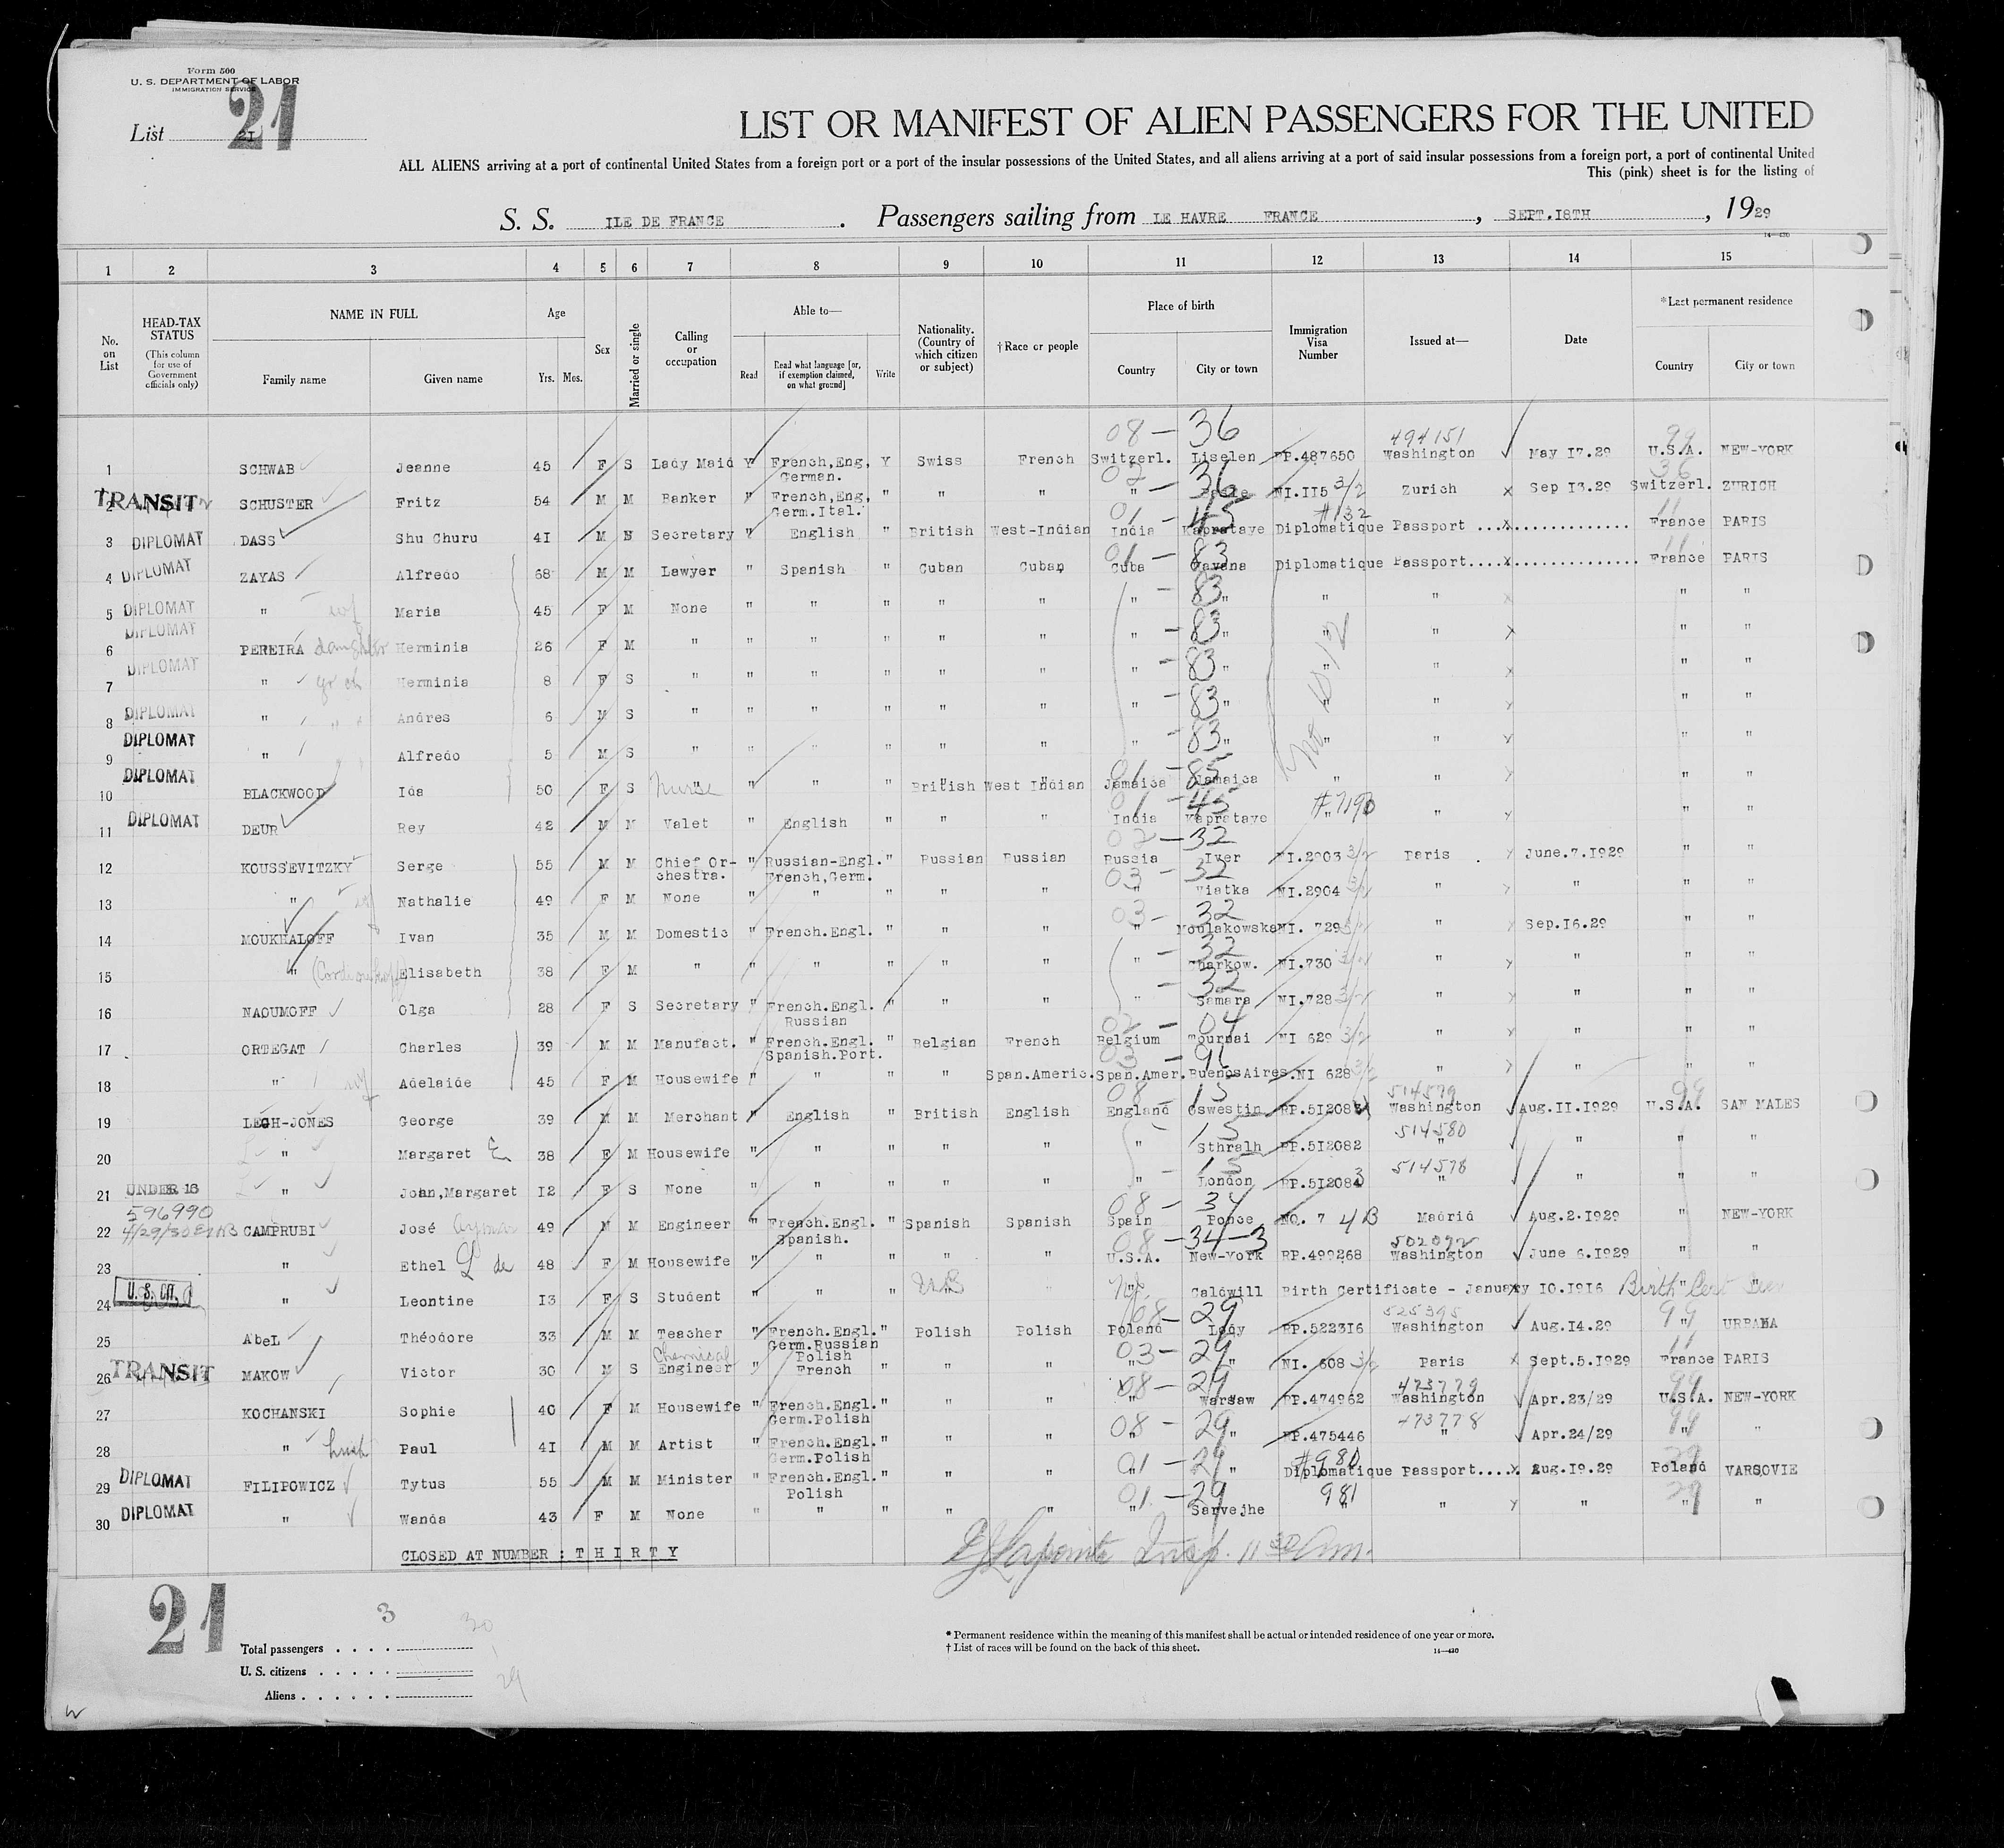 Form 500
U. S. DEPARTMENT OF LABOR
IMMIGRATION SERVICE
List 21
21
LIST OR MANIFEST OF ALIEN PASSENGERS FOR THE UNITED
ALL ALIENS arriving at a port of continental United States from a foreign port or a port of the insular possessions of the United States, and all aliens arriving at a port of said insular possessions from a foreign port, a port of continental United
This (pink) sheet is for the listing of
S. S. ILE DE FRANCE. Passengers sailing from LE HAVRE FRANCE, SEPT.18TH, 1929
14—430
1 2 3 4 5 6 7 8 9 10 11 12 13 14 15
No. on List
HEAD-TAX STATUS
(This column for use of Government officials only)
NAME IN FULL
Family name Given name
Age
Yrs. Mos.
Sex
Married or single
Calling or occupation
Able to—
Read
Read what language [or, if exemption claimed, on what ground]
Write
Nationality. (Country of which citizen or subject)
†Race or people
Place of birth
Country City or town
Immigration Visa Number
Issued at—
Date
*Last permanent residence
Country City or town
08 — 36 494151 99
1 SCHWAB Jeanne 45 F S Lady Maid Y French,Eng, German. Y Swiss French Switzerl. Liselen PP.487650 Washington May 17.29 U.S.A. NEW-YORK
02 — 36 36
2 TRANSIT SCHUSTER Fritz 54 M M Banker " French,Eng, Germ.Ital. " " " " NI.115 3/2 Zurich x Sep 13.29 Switzerl. ZURICH
01 — 45 #132 11
3 DIPLOMAT DASS Shu Churu 41 M S Secretary " English " British West-Indian India Kaprataye Diplomatique Passport ...x.............. France PARIS
01 — 83 11
4 DIPLOMAT ZAYAS Alfredo 68 M M Lawyer " Spanish " Cuban Cuban Cuba Havana Diplomatique Passport....x............... France PARIS
5 DIPLOMAT " wf Maria 45 F M None " " " " " " — 83 " " x " "
6 DIPLOMAT PEREIRA daughter Herminia 26 F M " " " " " " " — 83 " " " x " "
7 DIPLOMAT " gr ch Herminia 8 F S " " " " " " " — 83 " " " x " "
8 DIPLOMAT " " Andres 6 M S " " " " " " " — 83 " " " x " "
9 DIPLOMAT " Alfredo 5 M S " " " " " " " 83 " " " x " "
01 — 85
10 DIPLOMAT BLACKWOOD Ida 50 F S Nurse " " " British West Indian Jamaica Jamaica " " x " "
01 — 45 #7190
11 DIPLOMAT DEUR Rey 42 M M Valet " English " " " India Kaprataye " " x " "
02 — 32
12 KOUSSEVITZKY Serge 55 M M Chief Or-chestra. " Russian-Engl. French,Germ. " Russian Russian Russia Iver NI.2903 3/2 Paris x June.7.1929 " "
03 — 32
13 " wf Nathalie 49 F M None " " " " " " Viatka NI.2904 3/2 " x " " "
03 — 32
14 MOUKHALOFF Ivan 35 M M Domestic " French.Engl. " " " " NI. 729 3/2 " x Sep.16.29 " "
— 32
15 " Elisabeth 38 F M " " " " " " Charkow. NI.730 3/2 " x " " "
— 32
16 NAOUMOFF Olga 28 F S Secretary " French.Engl. Russian " " " " Samara NI.728 3/2 " x " " "
02 — 04
17 ORTEGAT Charles 39 M M Manufact. " French.Engl. Spanish.Port. " Belgian French Belgium Tournai NI 629 3/2 " x " " "
03 — 96
18 " wf Adelaide 45 F M Housewife " " " " Span.Americ. Span.Amer. BuenosAires. NI 628 3/2 " x " " "
08 — 15 514579 99
19 LEGH-JONES George 39 M M Merchant " English " British English England Oswestin PP.512081 Washington Aug.11.1929 U.S.A. SAN MALES
15 514580
20 " Margaret E 38 F M Housewife " " " " " " Sthralh PP.512082 " " " "
— 15 514578
21 UNDER 16 " Joan,Margaret 12 F S None " " " " " " London PP.512083 " " " "
596990 08 — 34
22 4/29/30 CAMPRUBI José Aymar 49 M M Engineer " French.Engl. Spanish. " Spanish Spanish Spain Ponce NO. 7 4B Madrid Aug.2.1929 " NEW-YORK
08 — 34 — 3 502092
23 " Ethel L de 48 F M Housewife " " " " " U.S.A. New-York RP.499268 Washington June 6.1929 " "
24 U.S. Cit. " Leontine 13 F S Student " " " " Caldwill Birth Certificate - January 10.1916 Birth Cert "
08 — 29 525395 99
25 AbeL Théodore 33 M M Teacher " French.Engl. Germ.Russian Polish " Polish Polish Poland Lody RP.522316 Washington Aug.14.29 " URBANA
03 — 29 11
26 TRANSIT MAKOW Victor 30 M S Chemical Engineer " French " " " " " NI. 608 3/2 Paris x Sept.5.1929 France PARIS
08 — 29 473779 99
27 KOCHANSKI Sophie 40 F M Housewife " French.Engl. Germ.Polish " " " " Warsaw PP.474962 Washington Apr.23/29 U.S.A. NEW-YORK
08 — 29 473778 99
28 " husb Paul 41 M M Artist " French.Engl. Germ.Polish " " " " " PP.475446 " Apr.24/29 " "
01 — 29 #980 29
29 DIPLOMAT FILIPOWICZ Tytus 55 M M Minister " French.Engl. Polish " " " " " Diplomatique Passport.... x Aug.19.29 Poland VARSOVIE
01 — 29 981 29
30 DIPLOMAT " Wanda 43 F M None " " " " " " Sarvejhe " " x " " "
CLOSED AT NUMBER : T H I R T Y
Insp. 11 30 am.
21
3
Total passengers . . . . 30
U. S. citizens . . . . . 1
Aliens . . . . . . 29
* Permanent residence within the meaning of this manifest shall be actual or intended residence of one year or more.
† List of races will be found on the back of this sheet.
14—430